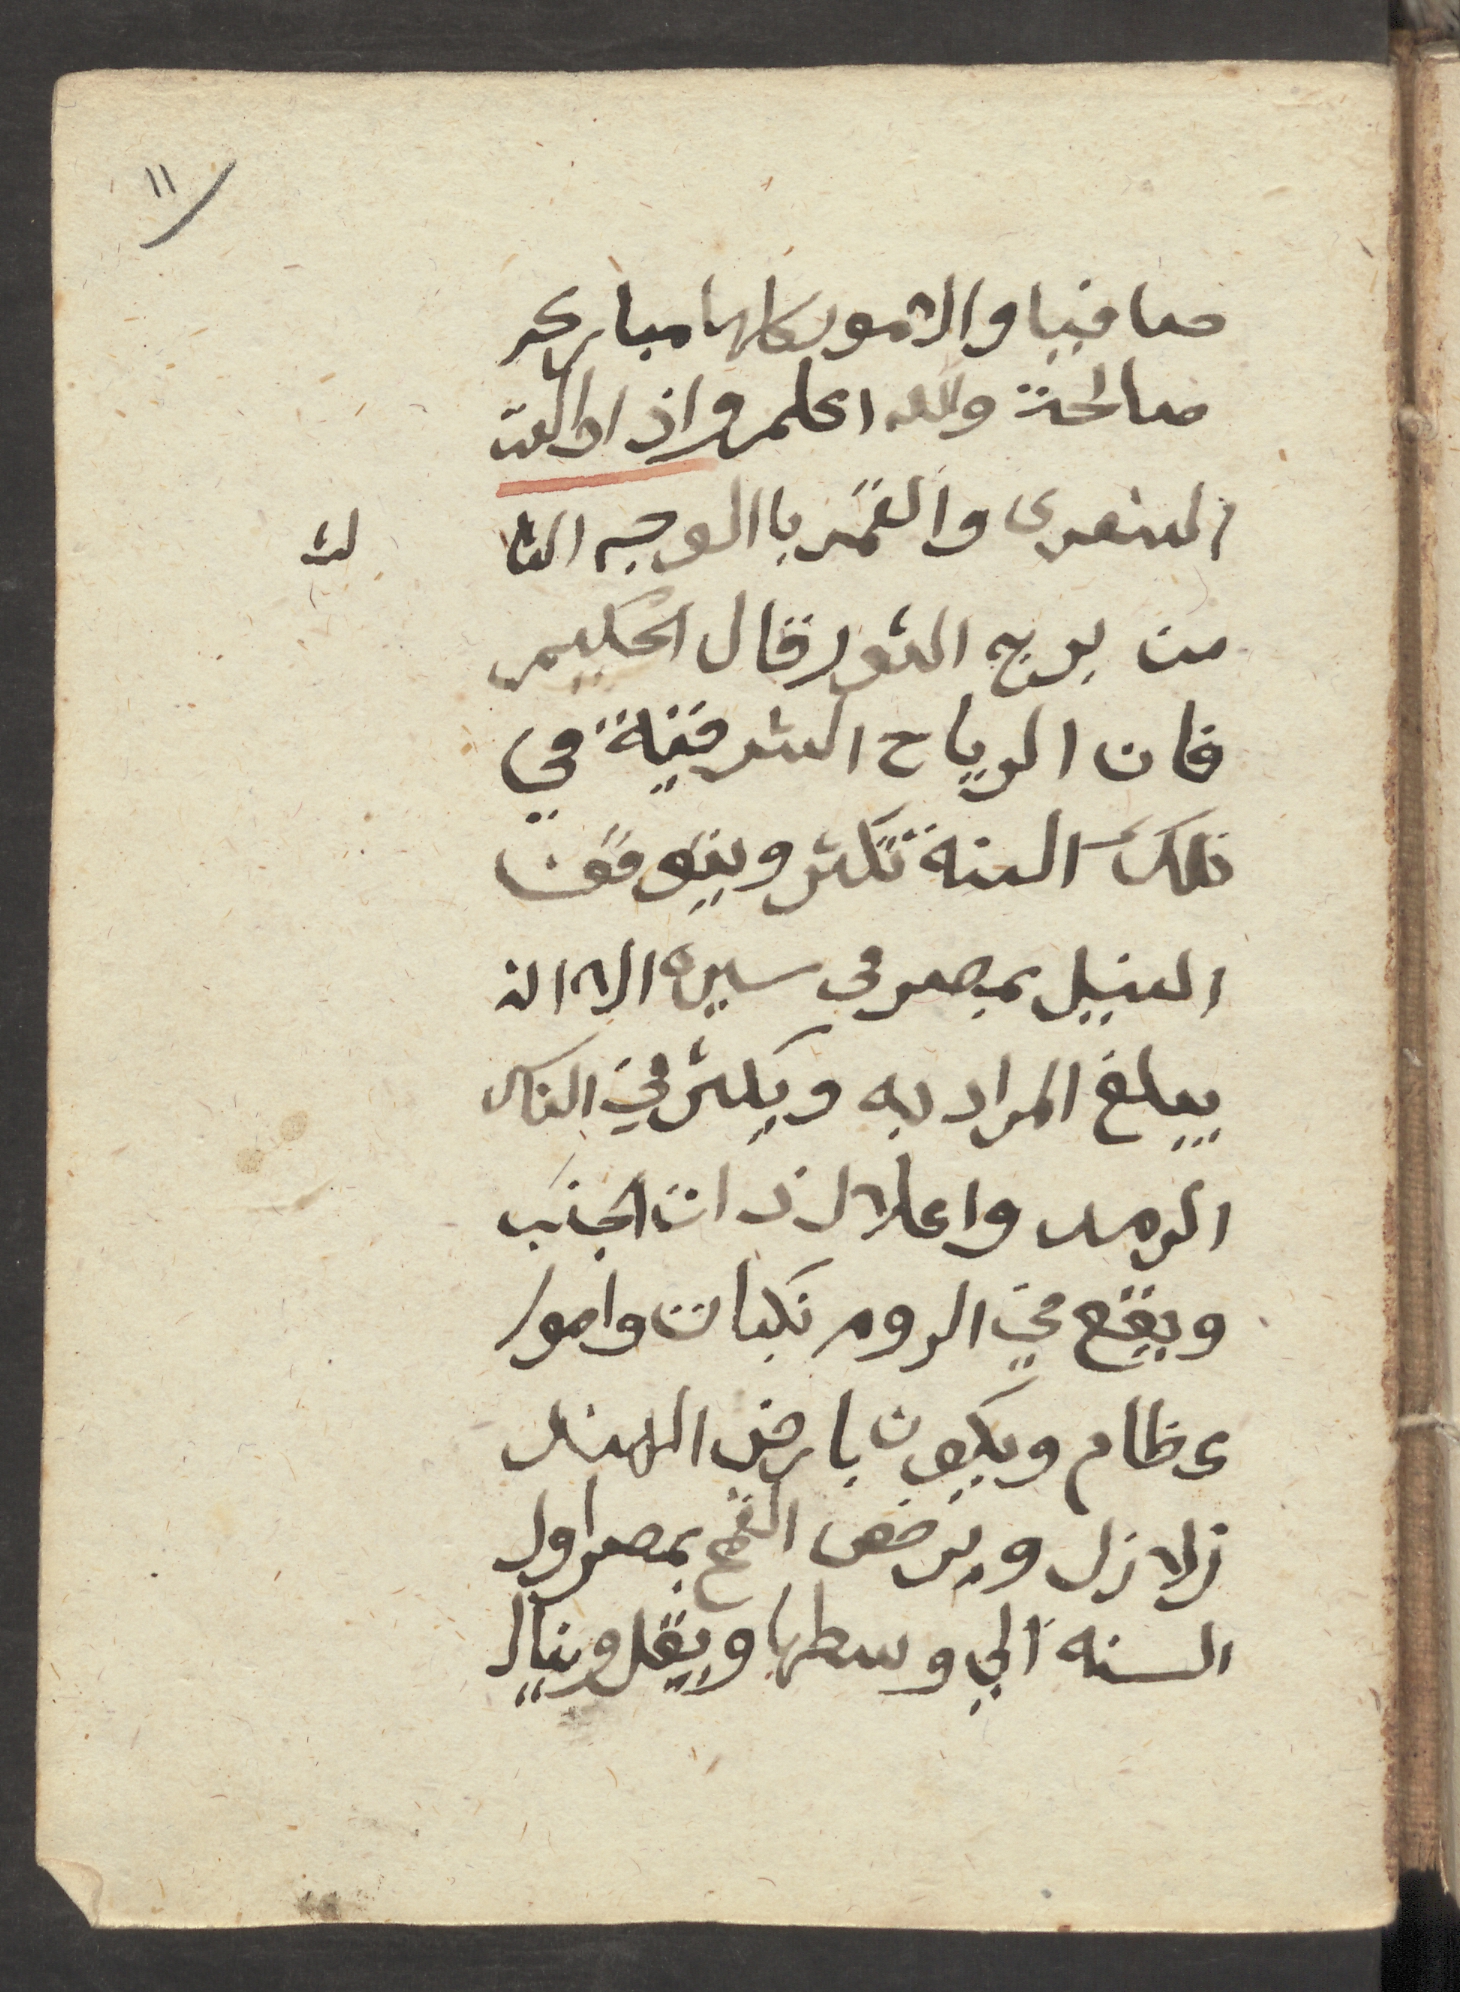 ١١
صافيا والامور كلها مباركه
صالحة والله اعلم واذا طلعت
الشعرى والقمر باالوجه الثا لث
من برج الثور قال الحكيم
فان الرياح الشرقية في
تلك السنة تكثر ويتوقف
النيل بمصر فى سيره الا انه
يبلغ المراد به ويكثر في الناس
الرمد واعلال ذات الجنب
ويقع في الروم نكبات وامور
عظام ويكون بارض الهند
زلازل ويرخص القمح بمصر اول
السنه الي وسطها ويقل وينال